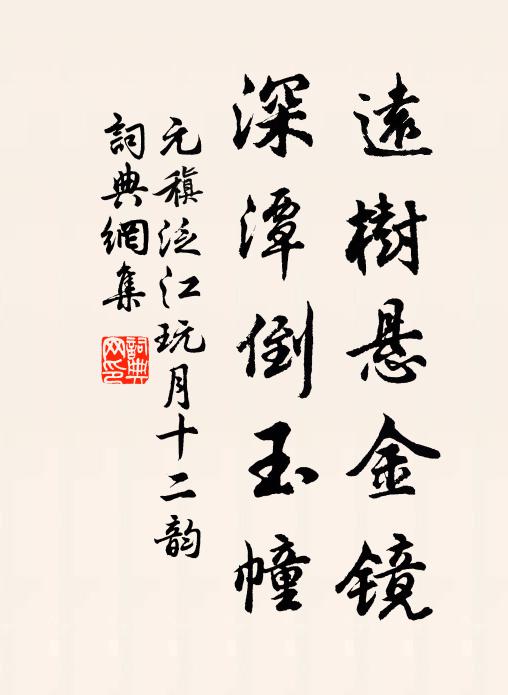 遠樹懸金鏡
深潭倒玉幢
元稹泛江玩月十二韵
詞典網集
詞典
网印